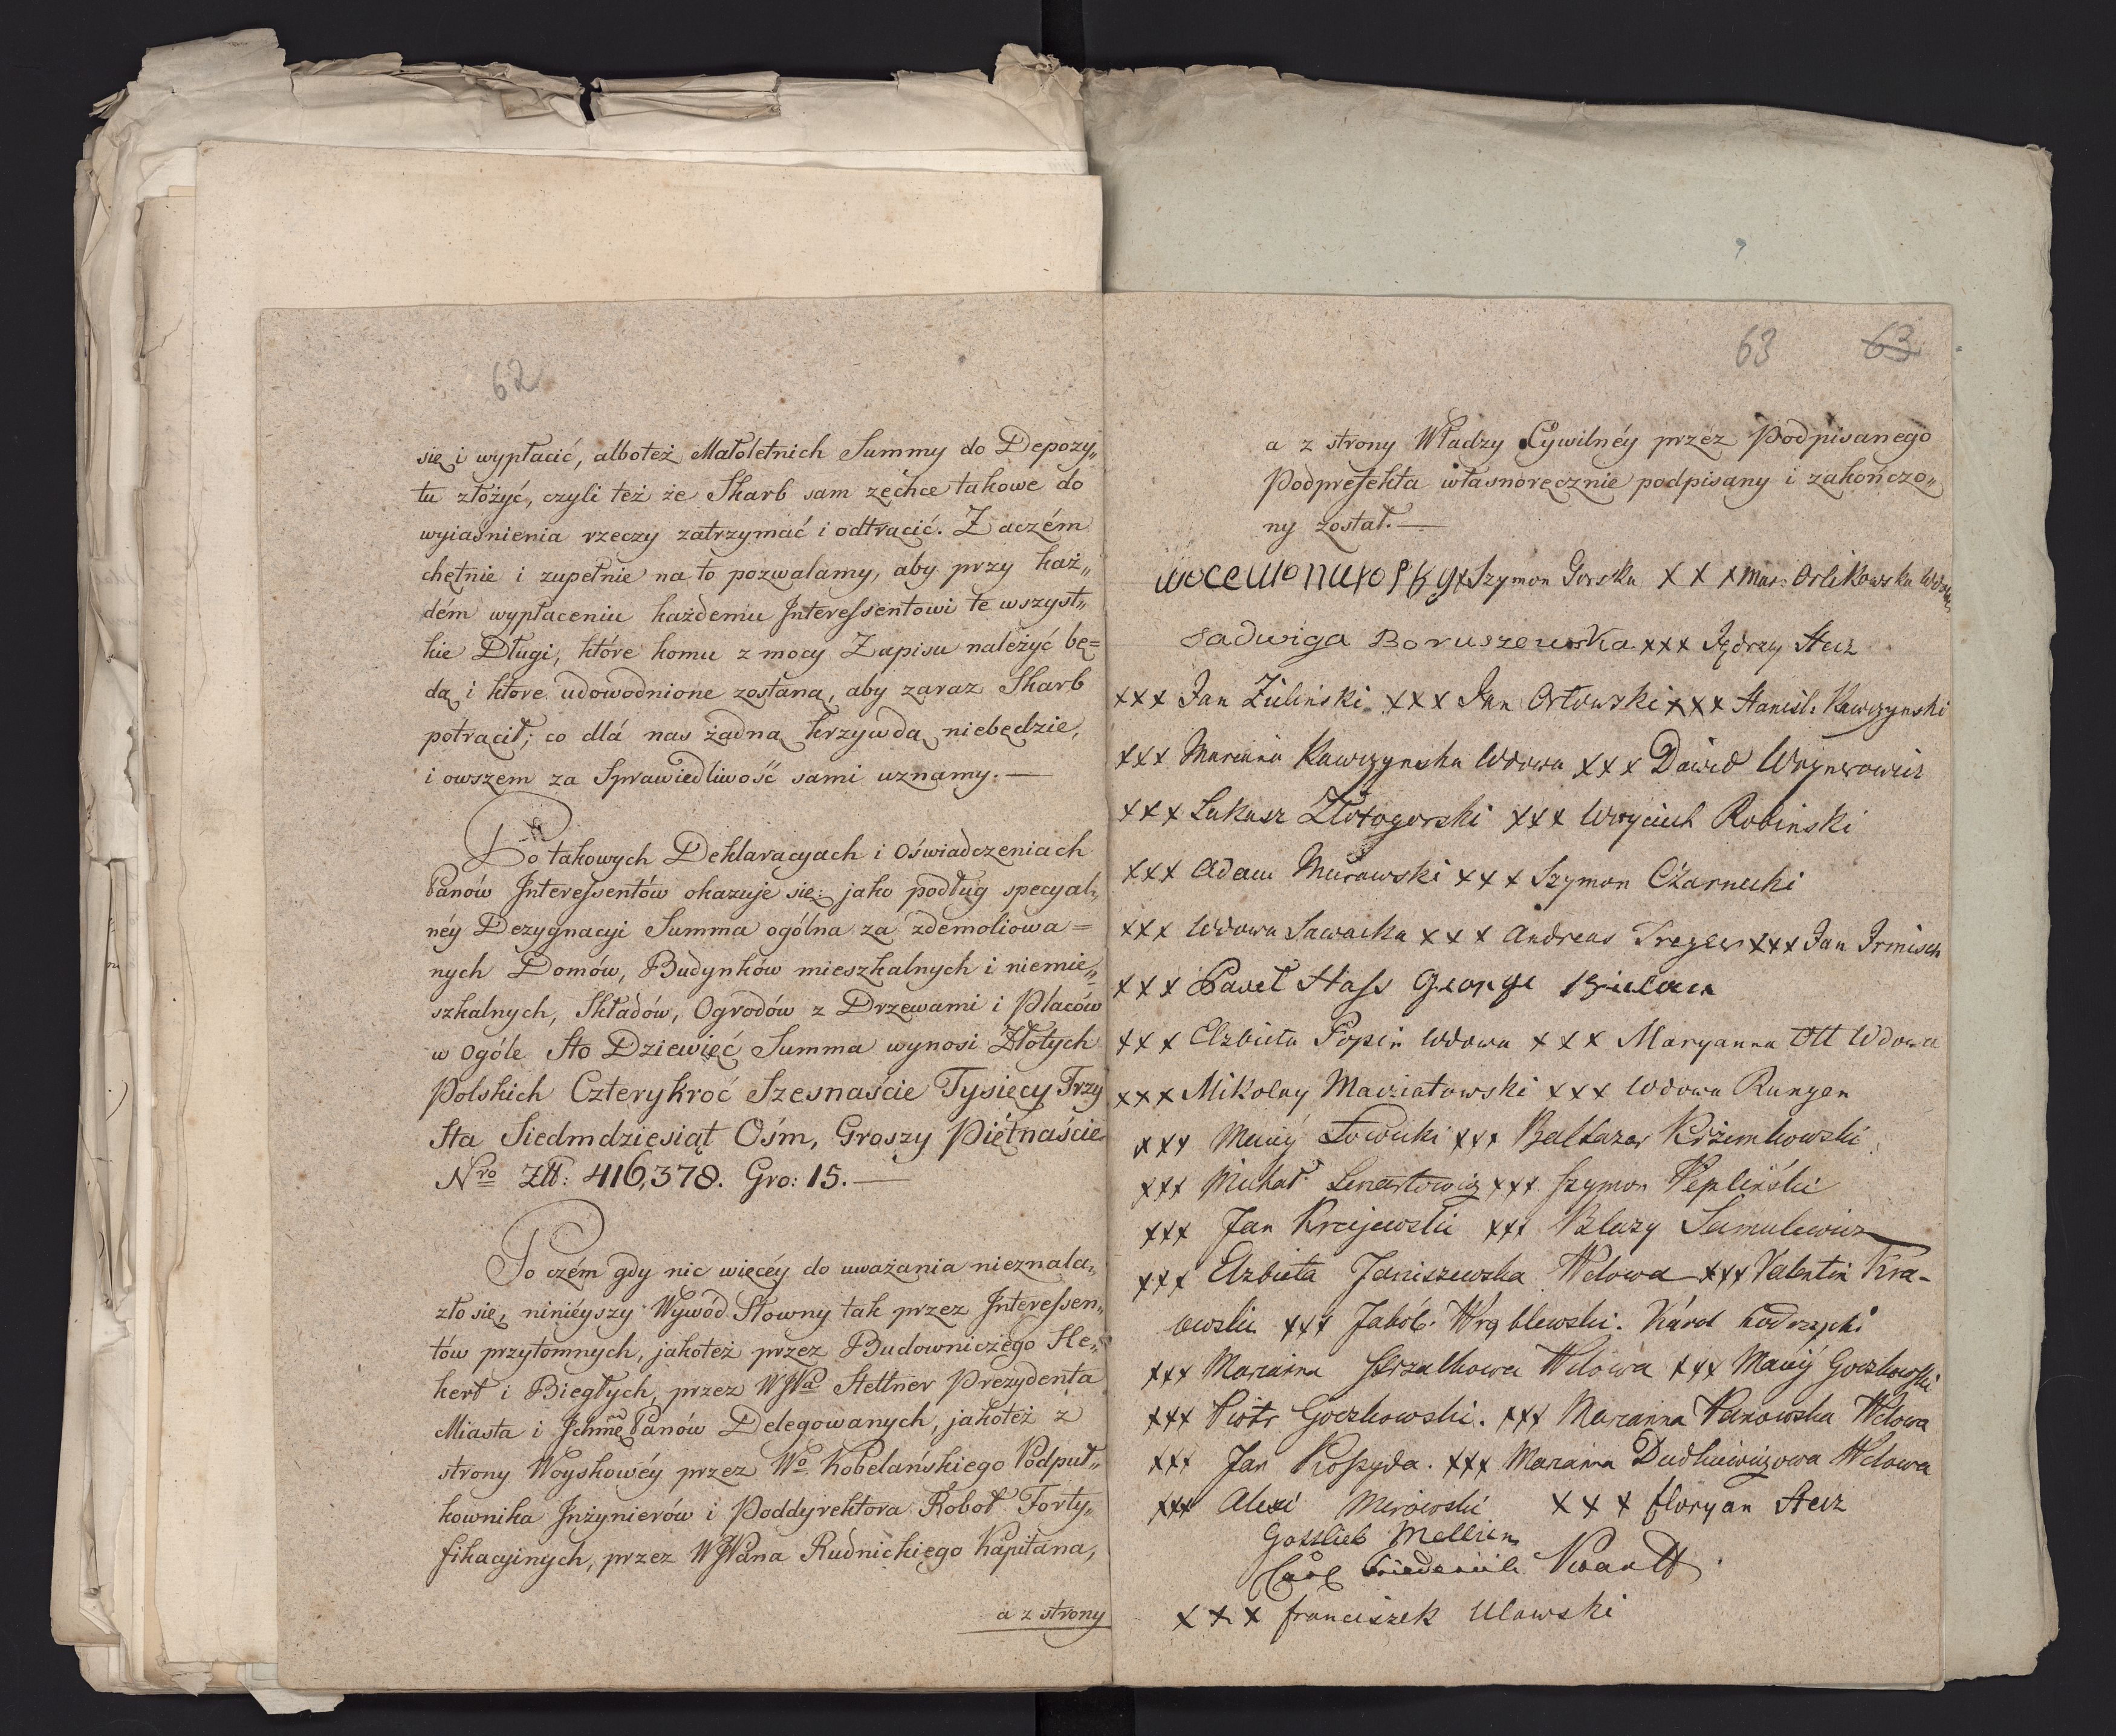 62
się i wypłacić, alboteż Małoletnich Summy do Depozy„
tu złożyć, czyli też że Skarb sam zechce takowe do
wyiaśnienia rzeczy zatrzymać i odtrącić. Zaczém
chętnie i zupełnie na to pozwalamy, aby przy każ„
dém wypłaceniu każdemu Interessentowi te wszyst„
kie Długi, które komu z mocy Zapisu należyć bę=
dą i które udowodnione zostaną, aby zaraz Skarb
potrącił; co dlá nas żadną krzywdą niebędzie,
i owszem za Sprawiedliwość sami uznamy. —
Po takowych Deklaracyach i oświadczeniach
Panów Interessentów okazuje się: jako podług specyal„
néy Dezygnacyi Summa ogólna za zdemoliowa=
nych Domów, Budynków mieszkalnych i niemie„
szkalnych, Składów, Ogrodów z Drzewami i Placów
w ogóle Sto Dziewięć Summa wynosi Złotych
Polskich Czterykroć Szesnaście Tysięcy Trzy
Sta Siedmdziesiąt Ośm, Groszy Piętnaście
Nro Złł: 416,378. Gro: 15. —
Po czém gdy nic więcéy do uważania nieznala„
zło się, ninieyszy Wywód Słowny tak przez Interessen„
tów przytomnych, jakoteż przez Budowniczego He„
kert i Biegłych, przez WJPa Stettner Prezydenta
Miasta i Jchmć Panów Delegowanych, jakoteż z
strony Woyskowéy przez Wo Kobelańskiego Podpuł„
kownika Inżynierów i Poddyrektora Robot Forty„
fikacyinych, przez WJPana Rudnickiego Kapitana,
a z strony
63 63
a z strony Władzy Cywilnéy przez Podpisanego
Podprefekta własnoręcznie podpisany i zakończo„
ny został. —
Szymon Gorska X X X Mar: Orlikowska Wdowa
Jadwiga Boruszewska xxx Jędrzy Stecz
xxx Jan Zieliński xxx Jan Orłowski xxx Stanisł: Kawczynski
xxx Marianna Kawczynska Wdowa xxx Dawid Woynerowicz
xxx Lukasz Złotogorski xxx Woyciech Robinski
xxx Adam Murawski xxx Szymon Czarnecki
xxx Wdowa Sawacka xxx Andreas Treger xxx Jan Irmisch
xxx Paweł Stass George
xxx Elzbieta Popin Wdowa xxx Maryanna Ott Wdowa
xxx Mikolay Maciatowski xxx Wdowa Rungen
xxx Maciy Nowicki xxx Baltazer Krzemkowski
xxx Michał Lenartowicz xxx Szymon Pepliński
xxx Jan Krajewski xxx Blazy Samulewicz
xxx Elzbieta Janiszewska Wdowa xxx Valentin Kra-
owski xxx Jakób Wrąblewski. Károl Kodrzycki
xxx Marianna Strzalkowa Wdowa xxx Maciy Goczkowski
xxx Piotr Goczkowski. xxx Marianna Panowska Wdowa
xxx Jan Kossyda. xxx Marianna Dudkiewiczowa Wdowa
xxx Alexi Mirowski xxx floryan Stecz
Gottlieb Mellien
Carl Friederich Kwandt
x x x franciszek Ulawski